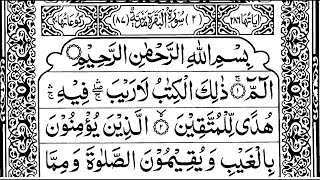 اٰیَاتُهَا ٢٨٦ (٢) سُوْرَةُ الْبَقَرَةِ مَدَنِیَّةٌ (٨٧) رُكُوْعَاتُهَا ٤٠
بِسْمِ اللّٰهِ الرَّحْمٰنِ الرَّحِیْمِ
الٓمّٓ ۚ ذٰلِكَ الْكِتٰبُ لَا رَیْبَ ۛ فِیْهِ ۛ
هُدًی لِّلْمُتَّقِیْنَ الَّذِیْنَ یُؤْمِنُوْنَ
بِالْغَیْبِ وَ یُقِیْمُوْنَ الصَّلٰوةَ وَ مِمَّا